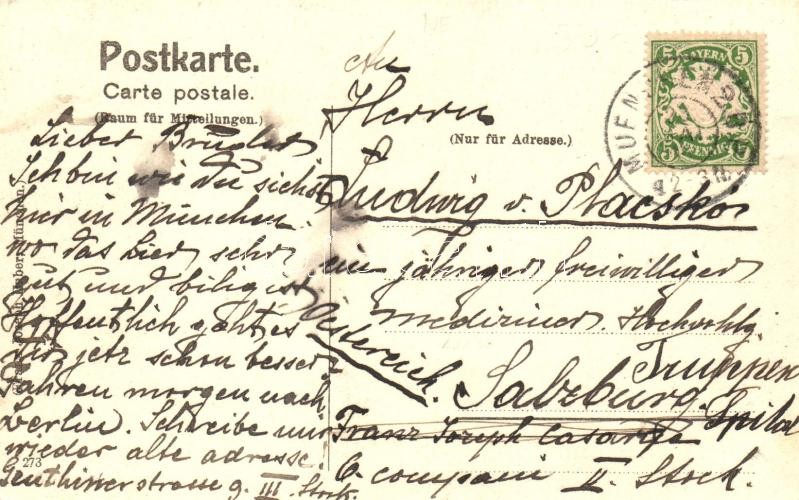 Postkarte.
Carte postale.
(Raum für Mitteilungen.)
Lieber Bruder
Ich bin wie du siehst
hier in München.
wo das Bier sehr
gut und bilig ist
Hoffentlich gehts
dir jetz schon besser
fahren morgen nach
Berlin. Schreibe mir
wieder alte adresse.
Genthinerstrasse 9. III Stock.
273
An
Herrn
(Nur für Adresse.)
Ludwig v. Placskó
ein jähriger freiwilliger
mediziner. Hochwohlg.
Truppen
Salzburg. Spital
Österreich.
Franz Joseph Casarne
6 compani II. Stock.
BAYERN
5 5
5 5
PFENNIG
MUENCHEN